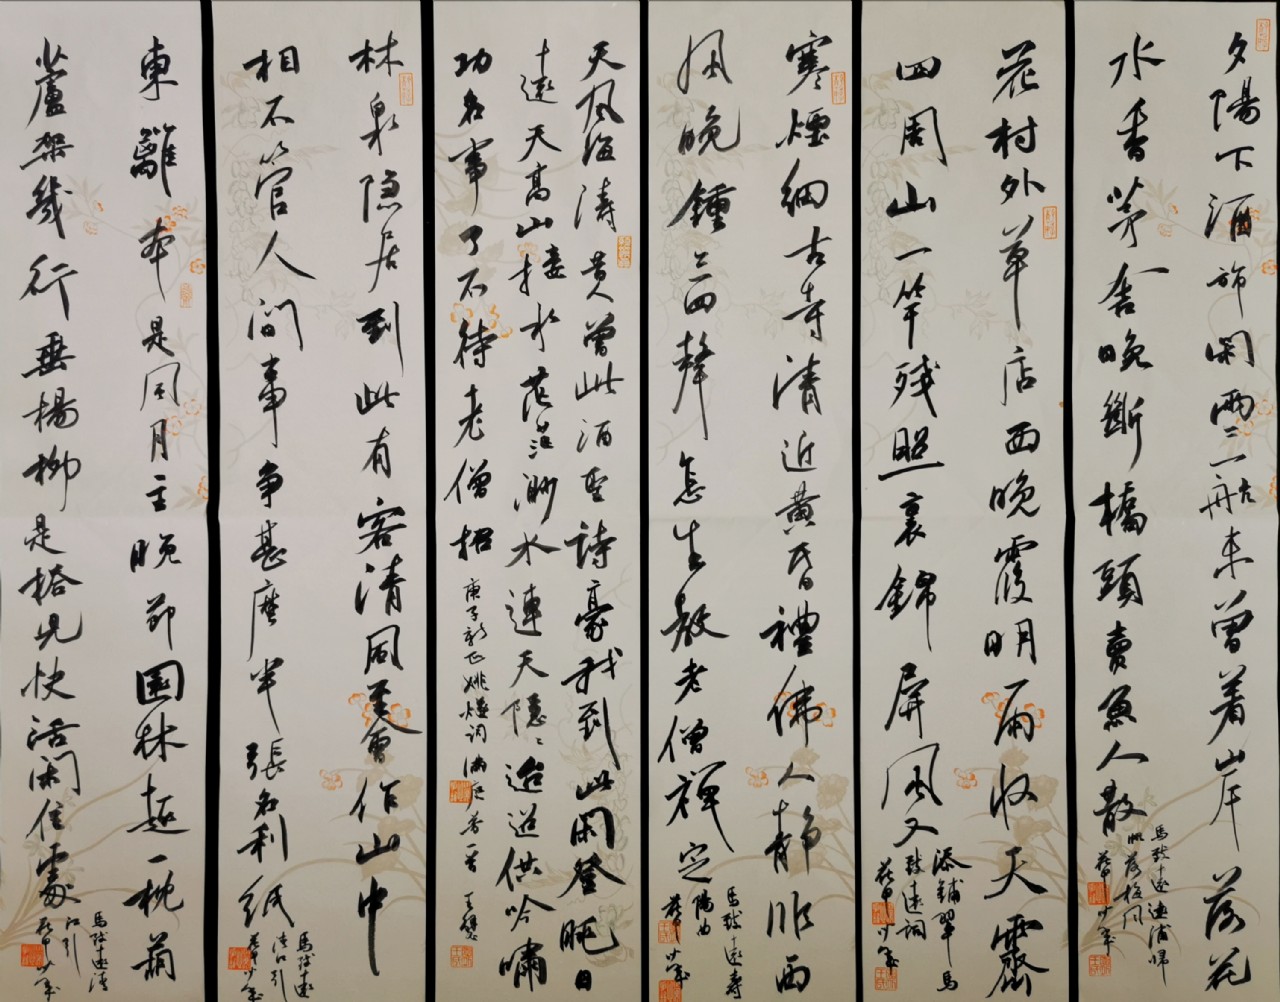 夕陽下酒旆閑兩三航未曾着山岸落花
水香茅舍晚斷橋頭賣魚人散
馬致遠遠浦帰
帆落梅風
花甲少年
花村外草店西晚霞明雨收天霽
四周山一竿殘照裏錦屏風又
添鋪翠馬
致遠詞
花甲少年
寒煙細古寺清近黃昏禮佛人靜順西
風晚鐘三四聲怎生教老僧禪定
馬致遠壽
陽曲
花甲少年
天風海濤昔人曾此酒聖詩豪我到此閑登眺日
遠天高山接水茫茫渺水連天隱隱迢迢供吟嘯
功名事了不待老僧招庚子新正姚燧詞滿庭芳一首
林泉隐居到此有客清風美會作山中
相不管人間事爭甚麼半張名利紙
馬致遠
清江引
花甲少年
東籬本是風月主晚節園林趣一枕葫
蘆架幾行垂楊柳是搭兒快活閑住處
馬致遠清
江引
花甲少年